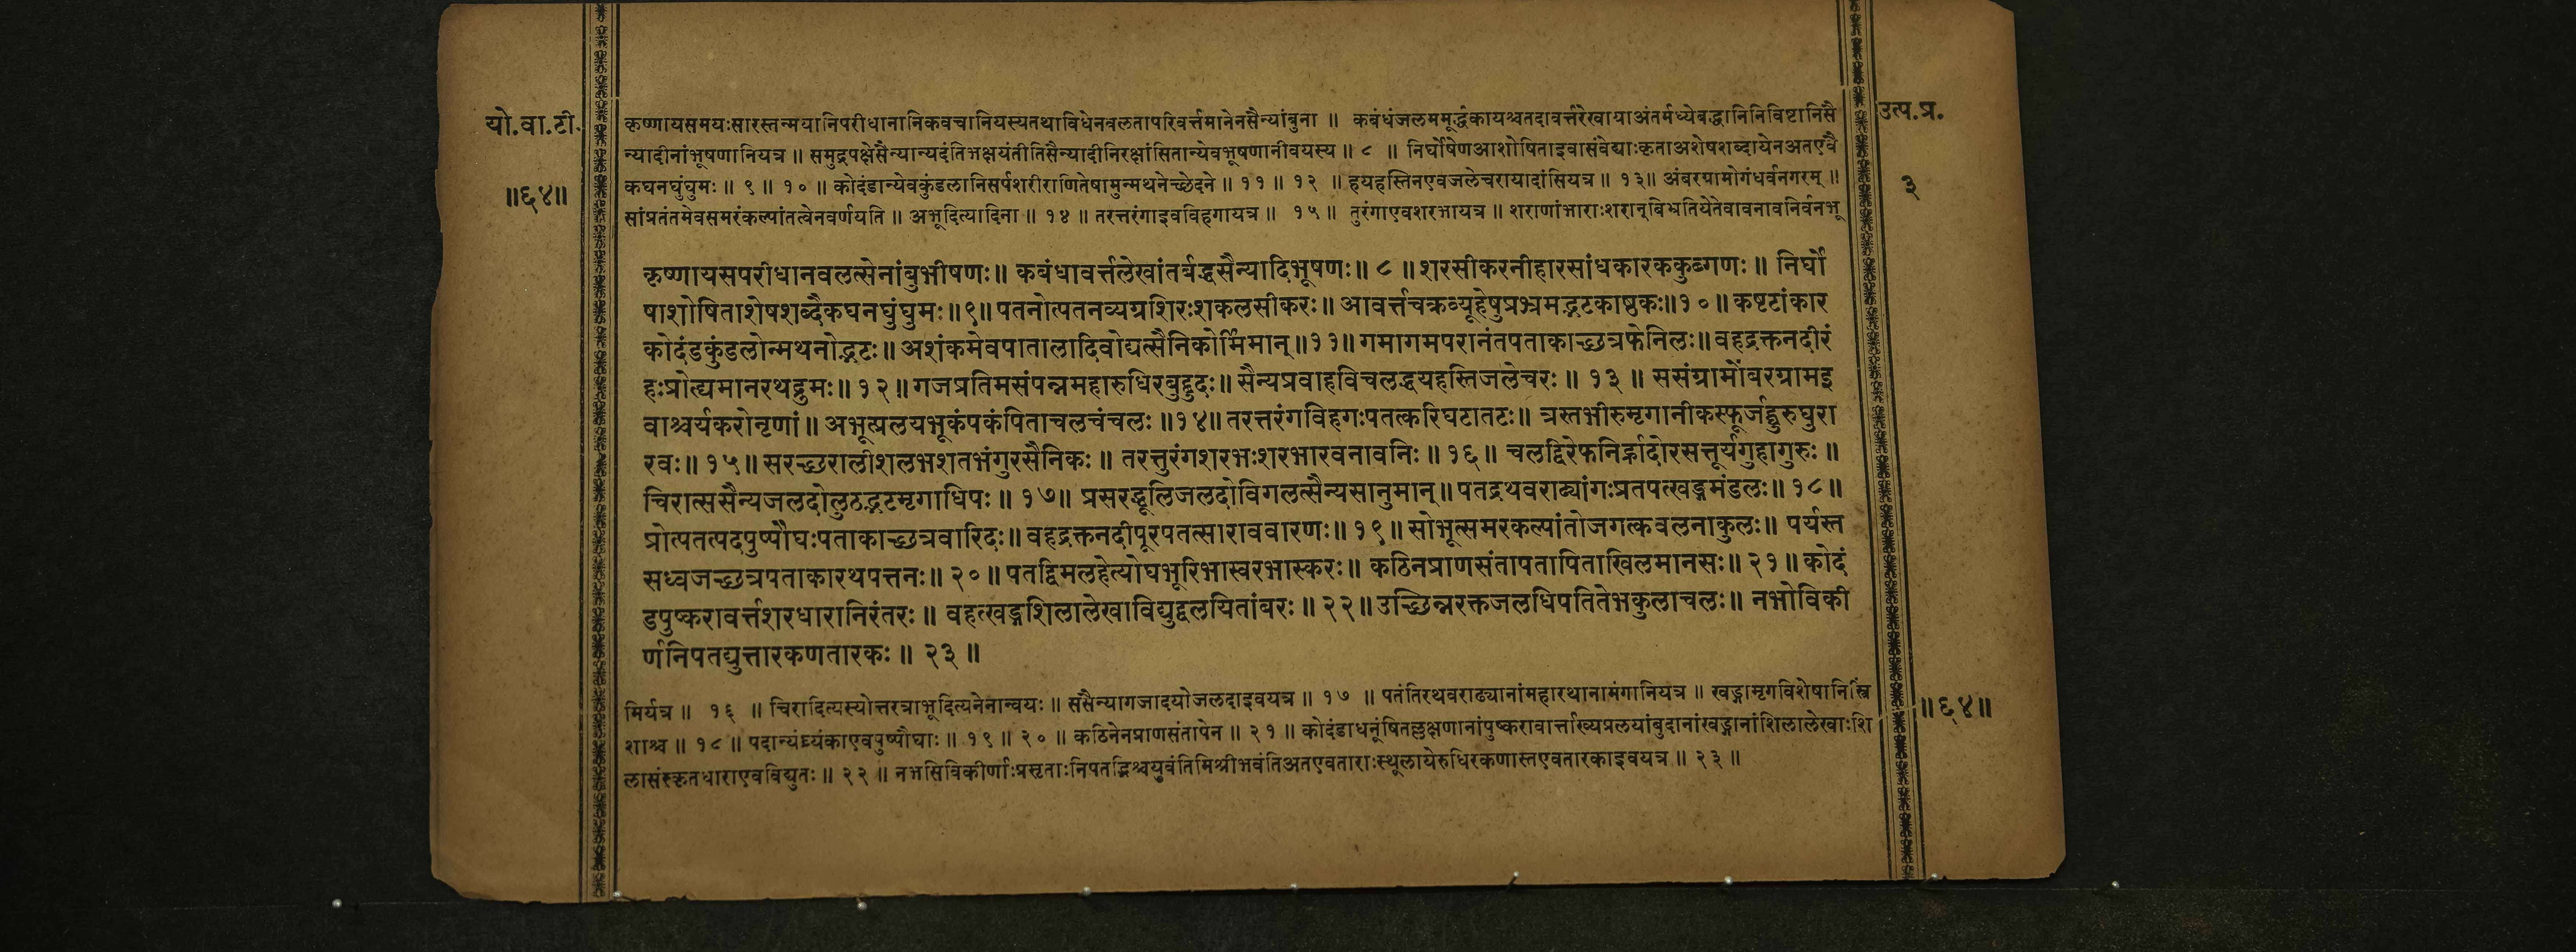 यो.वा.टी.
॥६४॥
उत्प.प्र.
३
कृष्णायसमयःसारस्तन्मयानिपरीधानानिकवचानियस्यतथाविधेनवलतापरिवर्त्तमानेनसैन्यांबुना ॥ कबंधंजलममूर्द्धकायश्चतदावर्त्तरेखायाअंतर्मध्येबद्धानिनिविष्टानिसै
न्यादीनांभूषणानियत्र ॥ समुद्रपक्षेसैन्यान्यदंतिभक्षयंतीतिसैन्यादीनिरक्षांसितान्येवभूषणानीवयस्य ॥ ८ ॥ निर्घोषेणआशोषिताइवासंवेद्याःकृताअशेषशब्दायेनअतएवै
कघनघुंघुमः ॥ ९ ॥ १० ॥ कोदंडान्येवकुंडलानिसर्पशरीराणितेषामुन्मथनेच्छेदने ॥ ११ ॥ १२ ॥ हयहस्तिनएवजलेचरायादांसियत्र ॥ १३॥ अंबरग्रामोगंधर्वनगरम् ॥
सांप्रतंतमेवसमरंकल्पांतत्वेनवर्णयति ॥ अभूदित्यादिना ॥ १४ ॥ तरत्तरंगाइवविहगायत्र ॥ १५ ॥ तुरंगाएवशरभायत्र ॥ शराणांभाराःशरान्बिभ्रतियेतेवावनावनिर्वनभू
कृष्णायसपरीधानवलत्सेनांबुभीषणः॥ कबंधावर्त्तलेखांतर्बद्धसैन्यादिभूषणः॥ ८ ॥ शरसीकरनीहारसांधकारककुब्गणः॥ निर्घो
षाशोषिताशेषशब्दैकघनघुंघुमः ॥९॥ पतनोत्पतनव्यग्रशिरःशकलसीकरः॥ आवर्त्तचक्रव्यूहेषुप्रभ्रमद्भटकाष्ठकः॥१०॥ कष्टटांकार
कोदंडकुंडलोन्मथनोद्भटः॥ अशंकमेवपातालादिवोद्यत्सैनिकोर्मिमान्॥११॥ गमागमपरानंतपताकाच्छत्रफेनिलः॥ वहद्रक्तनदीरं
हःप्रोत्द्यमानरथद्रुमः॥ १२॥ गजप्रतिमसंपन्नमहारुधिरबुद्बुदः॥ सैन्यप्रवाहविचलद्धयहस्तिजलेचरः॥ १३ ॥ ससंग्रामोंबरग्रामइ
वाश्चर्यकरोनृणां॥ अभूत्प्रलयभूकंपकंपिताचलचंचलः ॥१४॥ तरत्तरंगविहगःपतत्करिघटातटः॥ त्रस्तभीरुमृगानीकस्फूर्जद्घुरुघुरा
रवः॥ १५॥ सरच्छरालीशलभशतभंगुरसैनिकः॥ तरत्तुरंगशरभःशरभारवनावनिः॥ १६॥ चलद्विरेफनिर्ह्रादोरसत्तूर्यगुहागुरुः॥
चिरात्ससैन्यजलदोलुठद्भटमृगाधिपः॥ १७॥ प्रसरद्धूलिजलदोविगलत्सैन्यसानुमान्॥ पतद्रथवराढ्यांगःप्रतपत्खड्गमंडलः॥ १८॥
प्रोत्पतत्पदपुष्पौघःपताकाच्छत्रवारिदः॥ वहद्रक्तनदीपूरपतत्साराववारणः॥ १९॥ सोभूत्समरकल्पांतोजगत्कवलनाकुलः॥ पर्यस्त
सध्वजच्छत्रपताकारथपत्तनः॥ २०॥ पतद्विमलहेत्योघभूरिभास्वरभास्करः॥ कठिनप्राणसंतापतापिताखिलमानसः॥ २१॥ कोदं
डपुष्करावर्त्तशरधारानिरंतरः॥ वहत्खड्गशिलालेखाविद्युद्वलयितांबरः॥ २२॥ उच्छिन्नरक्तजलधिपतितेभकुलाचलः॥ नभोविकी
र्णनिपतद्युत्तारकणतारकः॥ २३॥
मिर्यत्र ॥ १६ ॥ चिरादित्यस्योत्तरत्राभूदित्यनेनान्वयः ॥ ससैन्यागजादयोजलदाइवयत्र ॥ १७ ॥ पतंतिरथवराढ्यानांमहारथानामंगानियत्र ॥ खड्गामृगविशेषानिस्त्रिं
शाश्च ॥ १८ ॥ पदान्यंघ्र्यंकाएवपुष्पौघाः ॥ १९ ॥ २० ॥ कठिनेनप्राणसंतापेन ॥ २१ ॥ कोदंडाधनूंषितल्लक्षणानांपुष्करावार्त्ताख्यप्रलयांबुदानांखड्गानांशिलालेखाःशि
लासंस्कृतधाराएवविद्युतः ॥ २२ ॥ नभसिविकीर्णाःप्रसृताःनिपतद्भिश्चयुवंतिमिश्रीभवंतिअतएवताराःस्थूलायेरुधिरकणास्तएवतारकाइवयत्र ॥ २३ ॥
॥६४॥